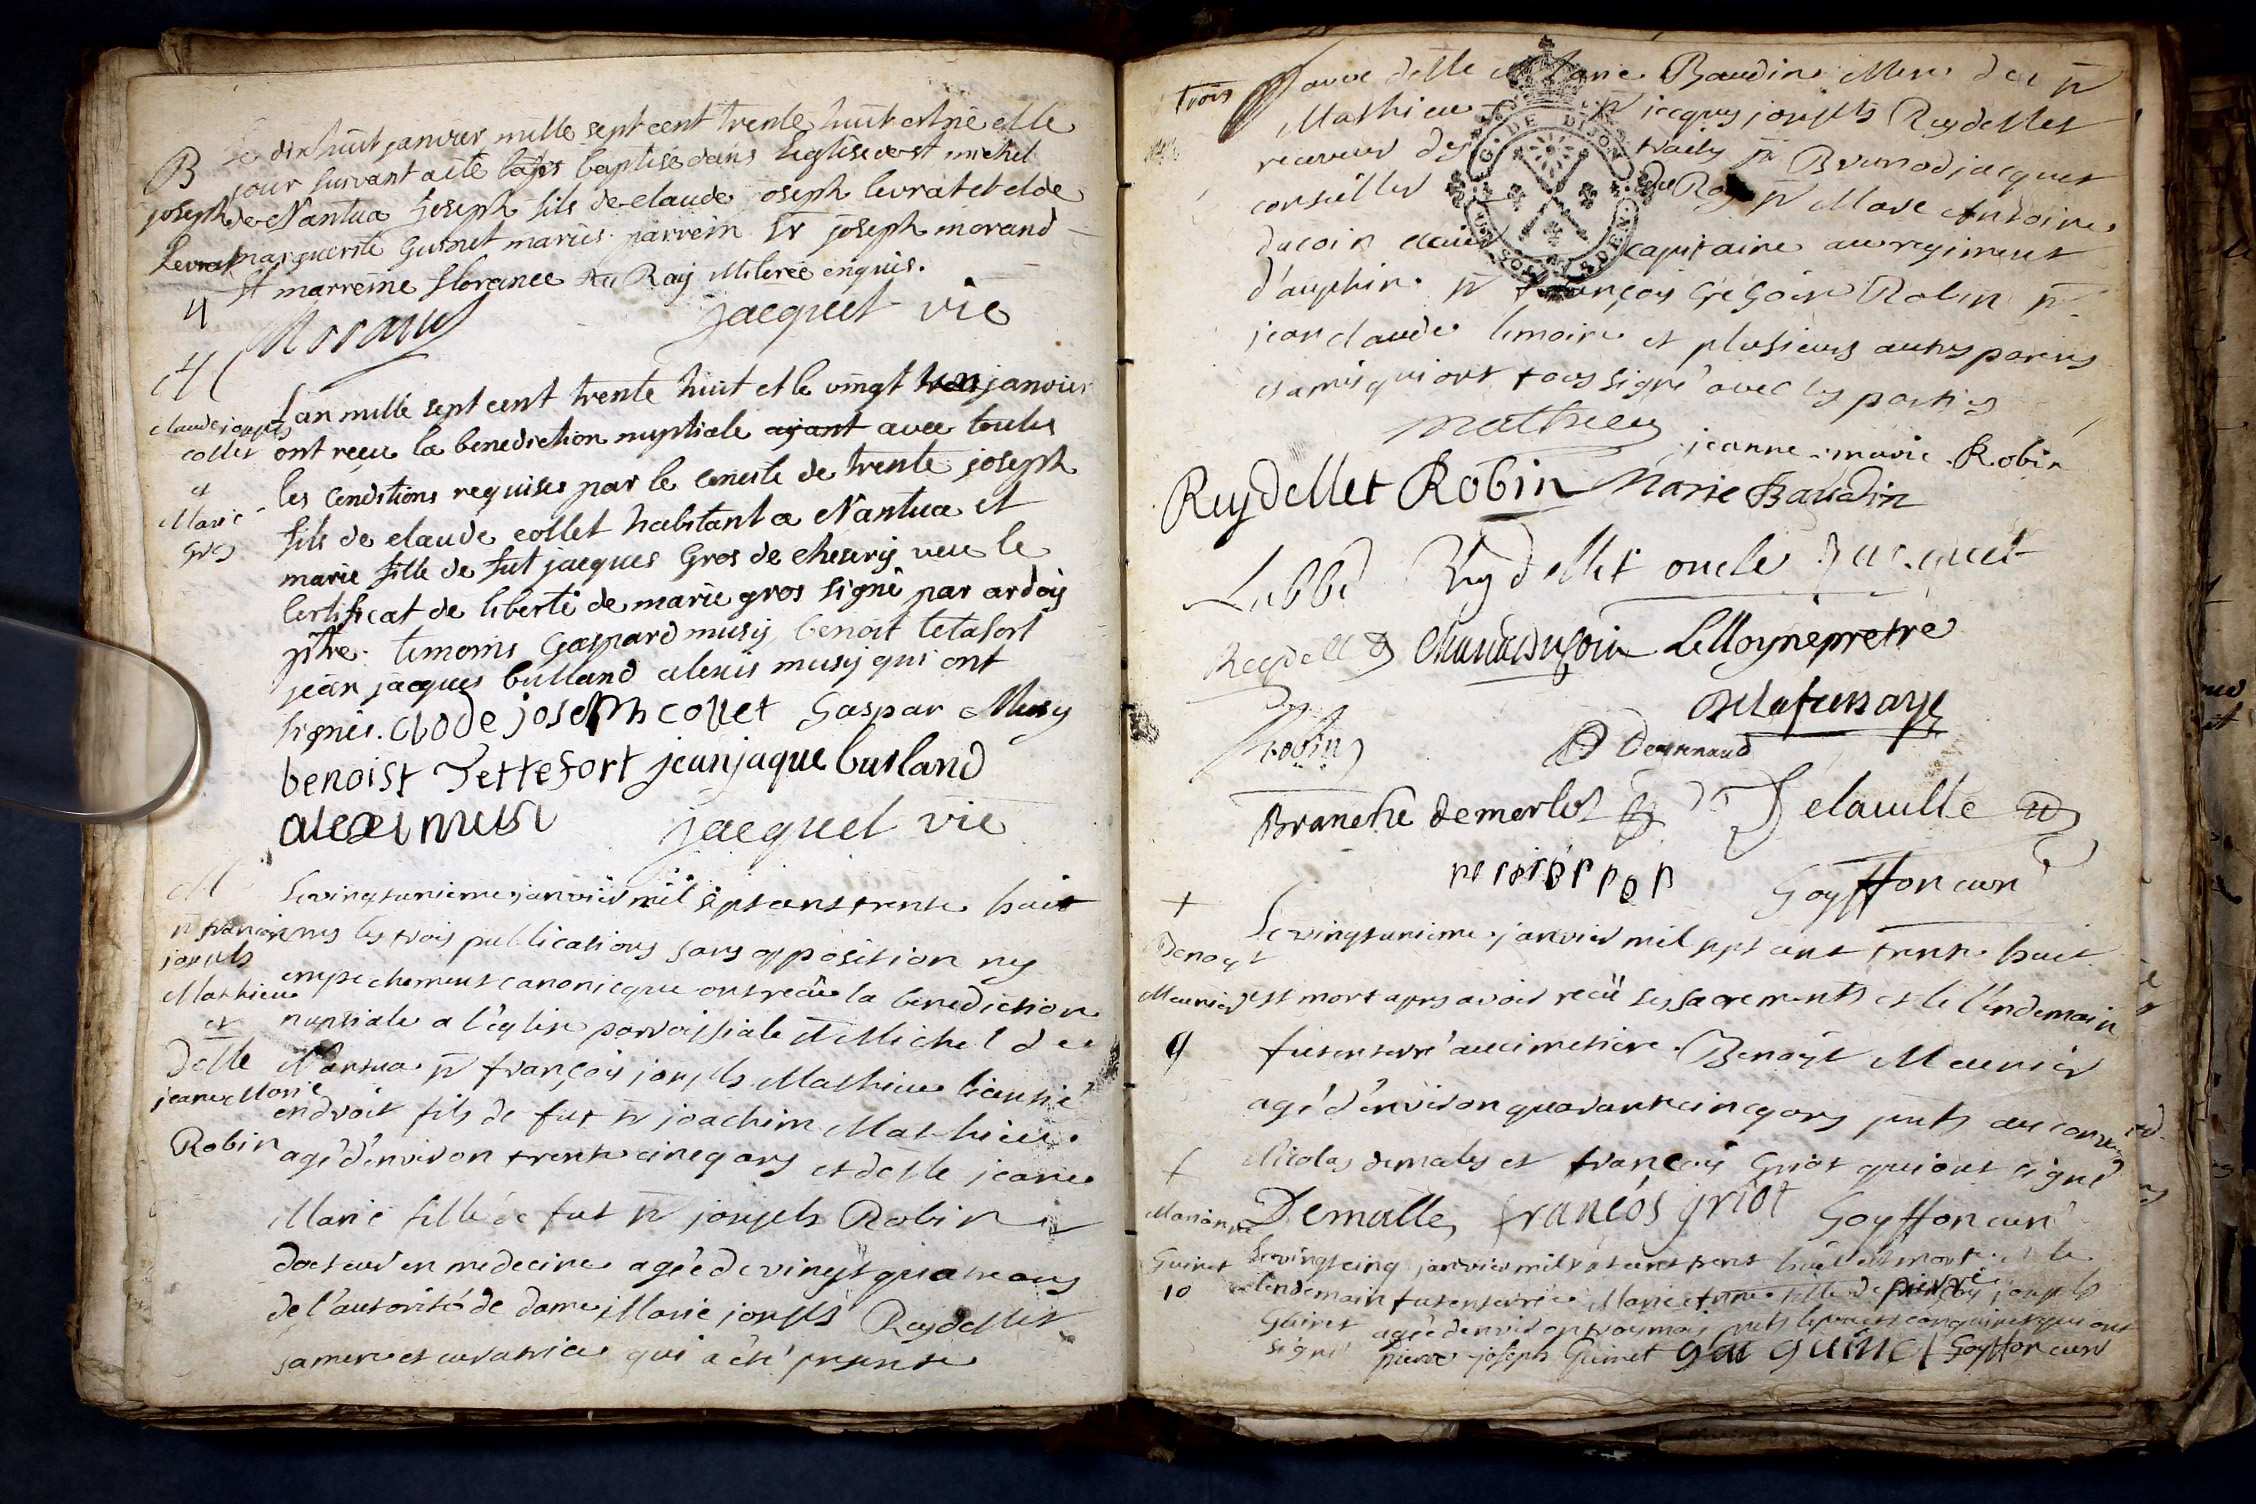 B
joseph
Levrat
4
Le dix huit janvier mille sept cent trente huit est né et le
jour suivant a été baptisé dans l'église de st michel
de Nantua joseph fils de claude joseph levrat et de
marguerite Guinet mariés parrein Sr joseph morand
et marreine florence Du Ray illiterée enquis.
Morand jacquet vic
M
claude joseph
collet
et
Marie
Gros
L'an mille sept cent trente huit et le vingt janvier
ont reçu la benediction nuptiale ayant avec toutes
les conditions requises par le concile de trente joseph
fils de claude collet habitant a Nantua et
marie fille de fut jacques Gros de chevry veu le
certificat de liberté de marie gros signé par ardoy
ptre. temoins Gaspard musy benoit tetafort
jean jacques bulland alexis musy qui ont
signés. clode joseph collet Gaspar Musy
benoist Tettefort jean jaque burland
alexi musi jacquet vic
M
Sr françois
joseph
Mathieu
et
Delle
jeane Marie
Robin
Le vingt unieme janvier mil sept cent trente huit
apres les trois publications sans opposition ny
empechement canonique ont reçu la benediction
nuptiale a l'église parroissiale St Michel de
Nantua Sr françois joseph Mathieu licentié
en droit fils de fut Sr joachim Mathieu
agé d'environ trente cinq ans et delle jeane
Marie fille de fut Sr joseph Robin
docteur en medecine agée de vingt quatre ans
de l'autorité de dame Marie joseph Reydellet
sa mere et curatrice qui a été presente
trois
avec delle Marie Baudin Mere du Sr
Mathieu Sr jacques joseph Reydellet
receveur des traites Sr Brunod jacquet
conseiller du Roy Sr Marc Antoine
ducoin ecuier capitaine au regiment
d'auphin Sr françois Gregoire Robin Sr
jean claude lemoine et plusieurs autres parens
et amis qui ont tous signé avec les parties
G. DE DIJON
mathieu jeanne marie Robin
Reydellet Robin Marie Baudin
Labbé Reydellet oncle Jacquet
Reydellet Ducoin LeMoyne pretre
Robin Delafernaye
Branche demerloz Delaville
Goyffon curé
+
Benoyt
Meunier
9
Le vingt unieme janvier mil sept cent trente huit
est mort apres avoir reçu ses sacrements et le l'endemain
fut enterré au cimetiere Benoyt Meunier
agé d'environ quarante cinq ans pnts au convoy
Nicolas demales et françois Griot qui ont signé
Demalle, françois griot Goyffon curé
+
Marianne
Guinet
10
Le vingt cinq janvier mil sept cent trente huit est morte et le
lendemain fut enterrée Marie Anne fille de pierre joseph
Guinet agée d'environ trois mois pnts
signé pierre joseph Guinet Guinet Goyffon curé